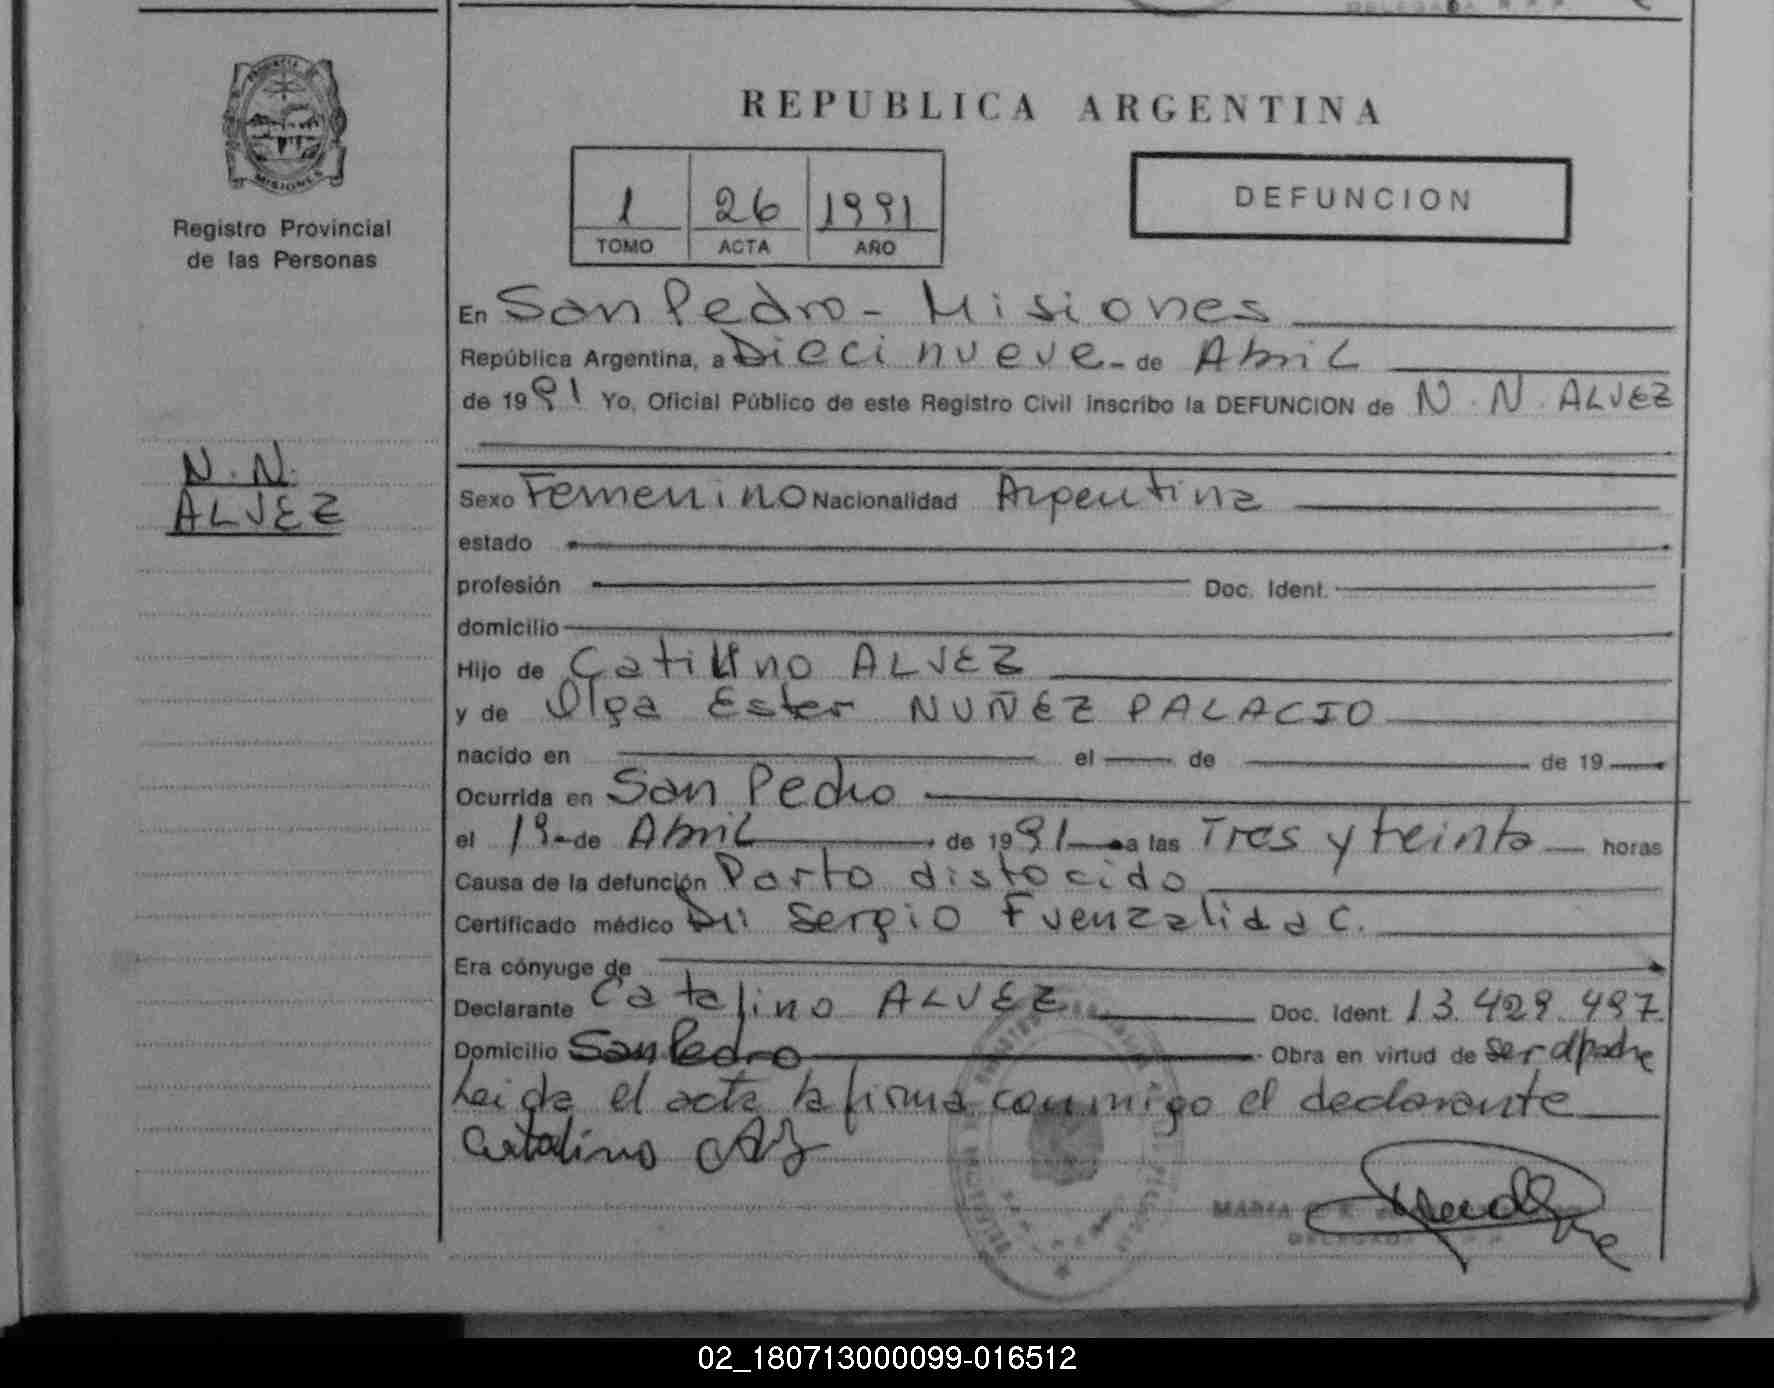 PROVINCIA DE
MISIONES
Registro Provincial
de las Personas
N.N.
ALVEZ
REPUBLICA ARGENTINA
1 26 1991
TOMO ACTA AÑO
DEFUNCION
En San Pedro - Misiones
República Argentina, a Diecinueve - de Abril
de 1991 Yo, Oficial Público de este Registro Civil inscribo la DEFUNCION de N.N. ALVEZ
Sexo Femenino Nacionalidad Argentina
estado
profesión Doc. Ident.
domicilio
Hijo de Catilino ALVEZ
y de Olga Ester NUÑEZ PALACIO
nacido en el de de 19
Ocurrida en San Pedro
el 19 - de Abril de 1991 a las Tres y treinta horas
Causa de la defunción Parto distocido
Certificado médico Dr: Sergio Fuenzalida C.
Era cónyuge de
Declarante Catalino ALVEZ Doc. Ident. 13.429.497
Domicilio San Pedro Obra en virtud de ser el padre
Leida el acta la firma conmigo el declarante
Catalino
MARIA
02_180713000099-016512